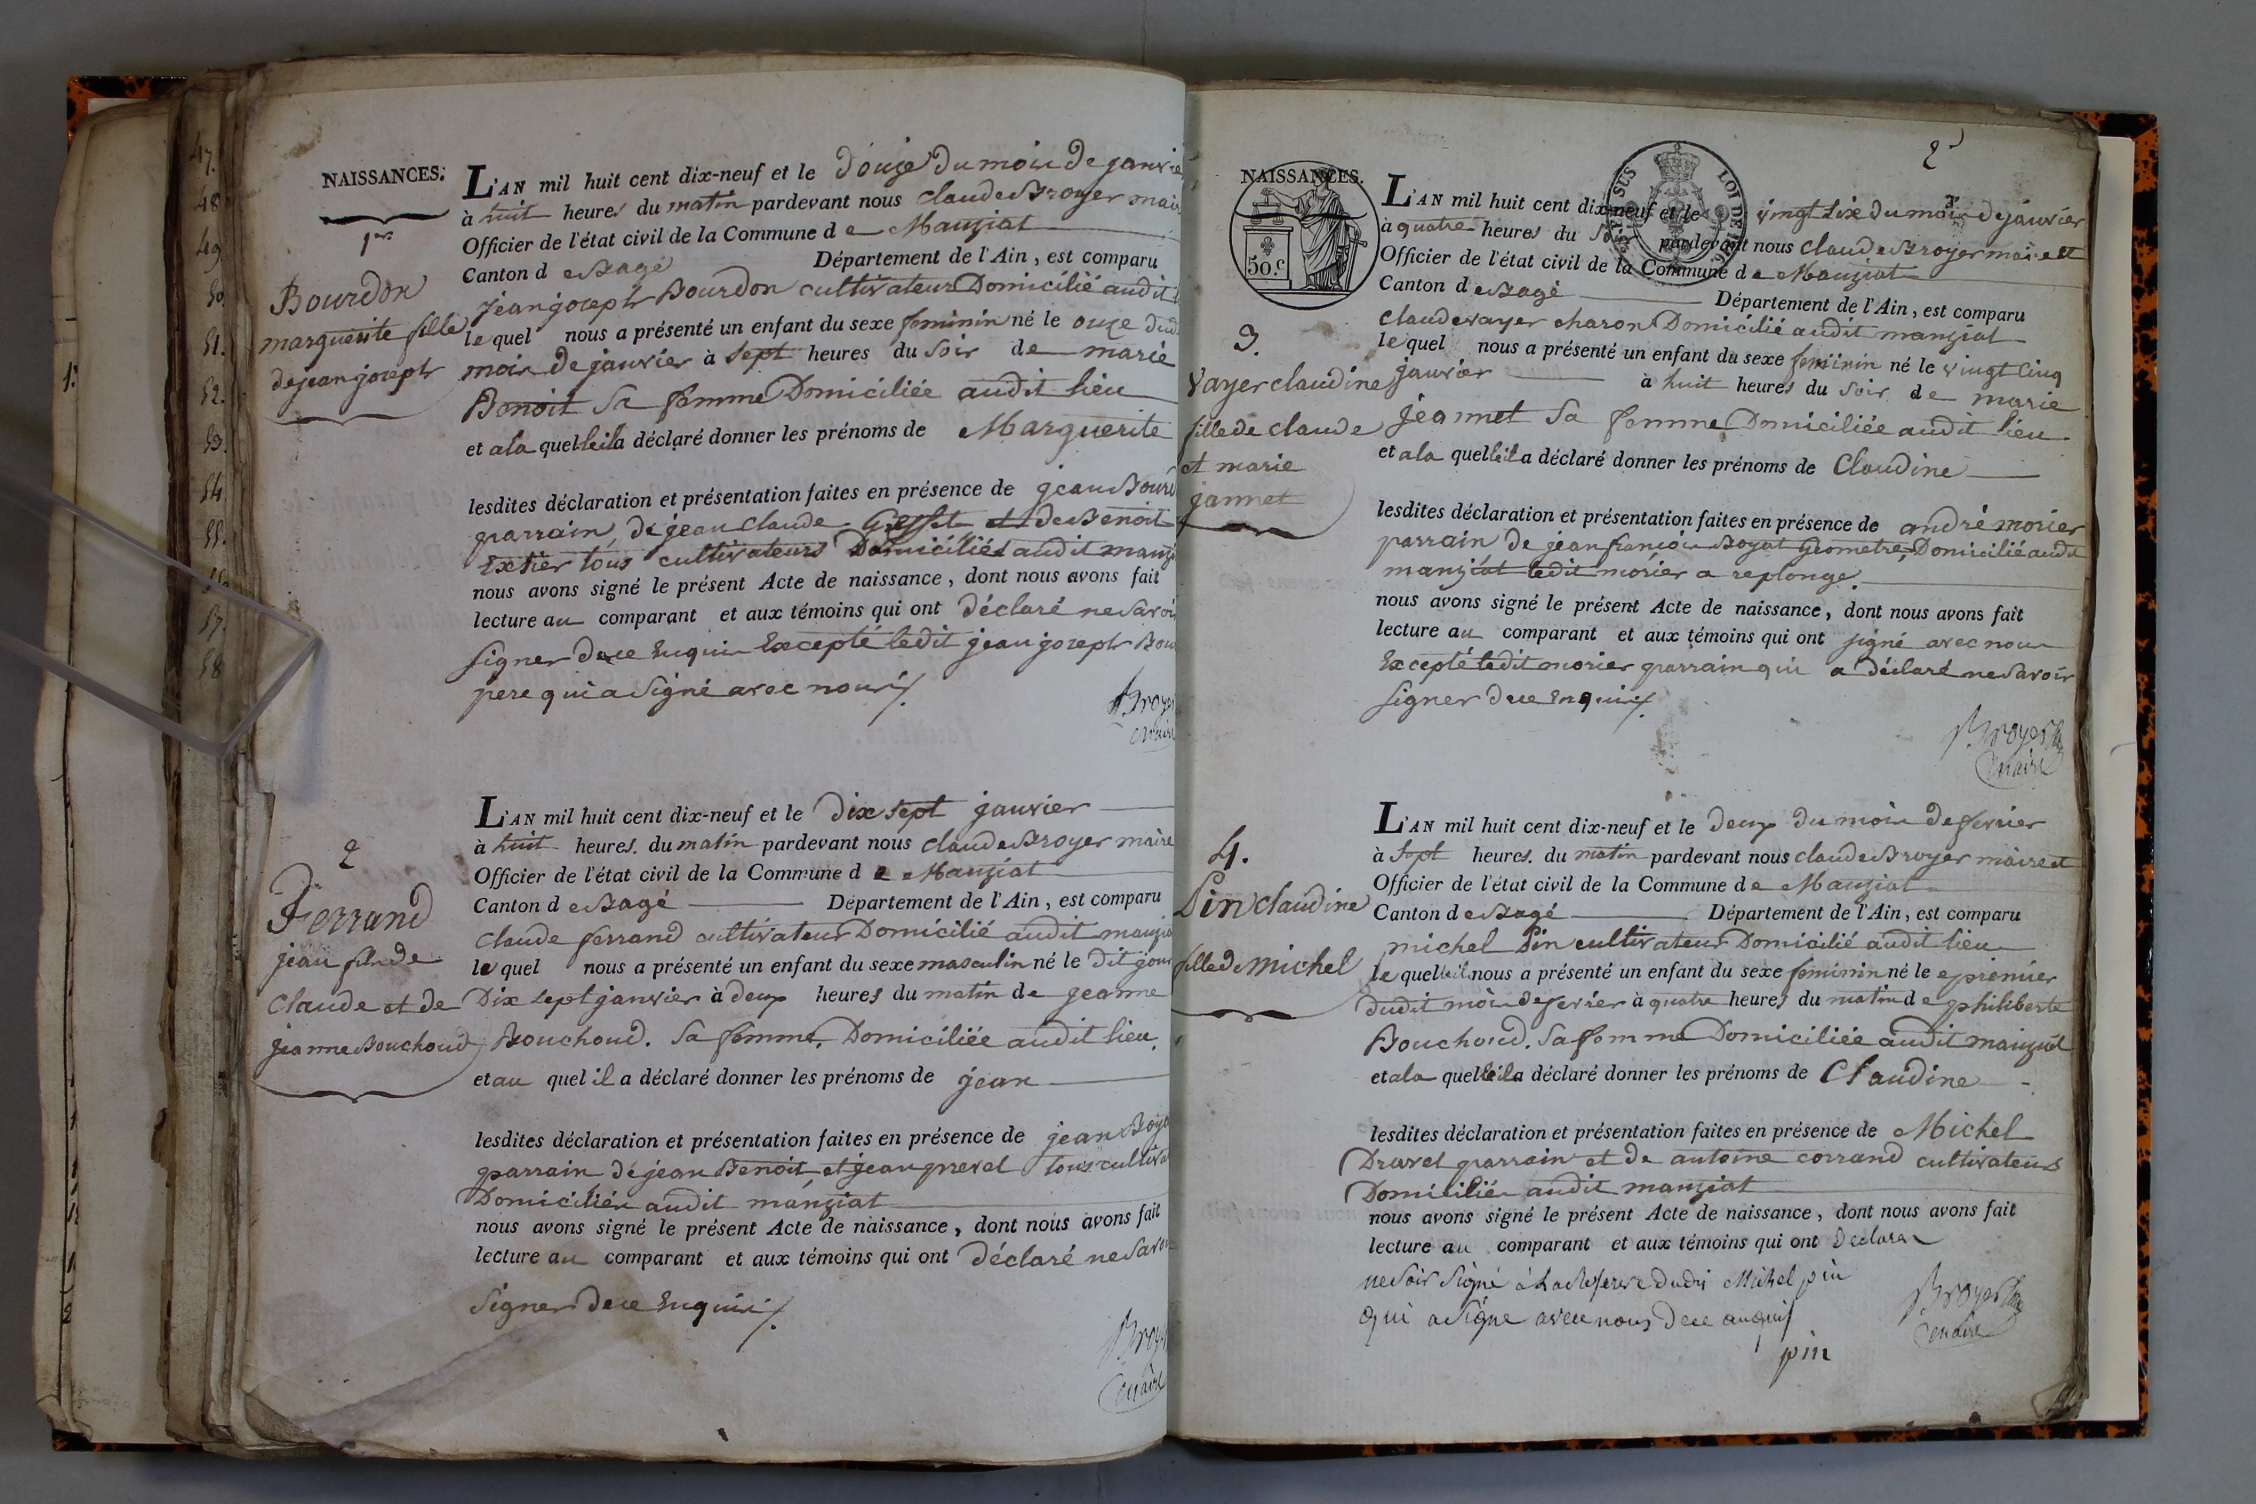 47.
48
49
50
51.
52.
53.
54.
55.
57.
58
1.
NAISSANCES.
1er
Bourdon
marguerite fille
de jean joseph
L'AN mil huit cent dix-neuf et le douze du mois de janvie
à huit heures du matin pardevant nous claude Broyer mair
Officier de l'état civil de la Commune de Manziat
Canton de Bagé Département de l'Ain, est comparu
jean joseph Bourdon cultivateur Domicilié audit
le quel nous a présenté un enfant du sexe feminin né le onze dud
mois de janvier à sept heures du soir de marie
Benoit sa femme Domiciliée audit lieu
et a la quelle il a déclaré donner les prénoms de Marguerite
lesdites déclaration et présentation faites en présence de jean Bourd
parrain, de jean claude et de Benoit
Extier tous cultivateurs Domiciliés audit manzi
nous avons signé le présent Acte de naissance, dont nous avons fait
lecture au comparant et aux témoins qui ont déclaré ne savoi
signer de ce Enquis Excepté ledit jean joseph Bou
pere qui a signé avec nous
Broyer
maire
2
Ferrand
jean fils de
claude et de
jeanne Bouchoud
L'AN mil huit cent dix-neuf et le dix sept janvier
à huit heures du matin pardevant nous claude Broyer maire
Officier de l'état civil de la Commune de Manziat
Canton de Bagé Département de l'Ain, est comparu
claude ferrand cultivateur Domicilié audit manzia
le quel nous a présenté un enfant du sexe masculin né le dit jour
Dix sept janvier à deux heures du matin de jeanne
Bouchoud. sa femme. Domiciliée audit lieu.
et au quel il a déclaré donner les prénoms de jean
lesdites déclaration et présentation faites en présence de jean Boya
parrain de jean Benoit et jean prevel tous cultiva
Domiciliés audit manziat
nous avons signé le présent Acte de naissance, dont nous avons fait
lecture au comparant et aux témoins qui ont déclaré ne savoi
signer de ce Enquis
Broyer
maire
2
NAISSANCES.
50.c
LOI DE
3.
vayer claudine
fille de claude
et marie
jannet
L'AN mil huit cent dix-neuf et le vingt six du mois de janvier
à quatre heures du soir pardevant nous claude Broyer maire et
Officier de l'état civil de la Commune de Manziat
Canton de Bagé Département de l'Ain, est comparu
claude vayer charon Domicilié audit manziat
le quel nous a présenté un enfant du sexe feminin né le vingt cinq
janvier à huit heures du soir de marie
jeannet sa femme Domiciliée audit lieu
et a la quelle il a déclaré donner les prénoms de Claudine
lesdites déclaration et présentation faites en présence de andré morier
parrain de jean françois Boyat Geometre, Domicilié audit
manziat ledit morier a replonge
nous avons signé le présent Acte de naissance, dont nous avons fait
lecture au comparant et aux témoins qui ont signé avec nous
Excepté ledit morier parrain qui a déclaré ne savoir
signer de ce Enquis
Broyer
maire
4.
Pin claudine
fille de michel
L'AN mil huit cent dix-neuf et le deux du mois de fevrier
à sept heures du matin pardevant nous claude Broyer maire et
Officier de l'état civil de la Commune de Manziat
Canton de Bagé Département de l'Ain, est comparu
michel Pin cultivateur Domicilié audit lieu
le quel nous a présenté un enfant du sexe feminin né le premier
dudit mois de fevrier à quatre heures du matin de philiberte
Bouchoud. sa femme Domiciliée audit manziat
et a la quelle il a déclaré donner les prénoms de Claudine
lesdites déclaration et présentation faites en présence de Michel
Dravet parrain et de antoine corrand cultivateurs
Domiciliés audit manziat
nous avons signé le présent Acte de naissance, dont nous avons fait
lecture au comparant et aux témoins qui ont Déclaré
ne soir signé à La Reserve dudi Michel pin
qui a signe avec nous de ce anquis
Broyer
maire
pin